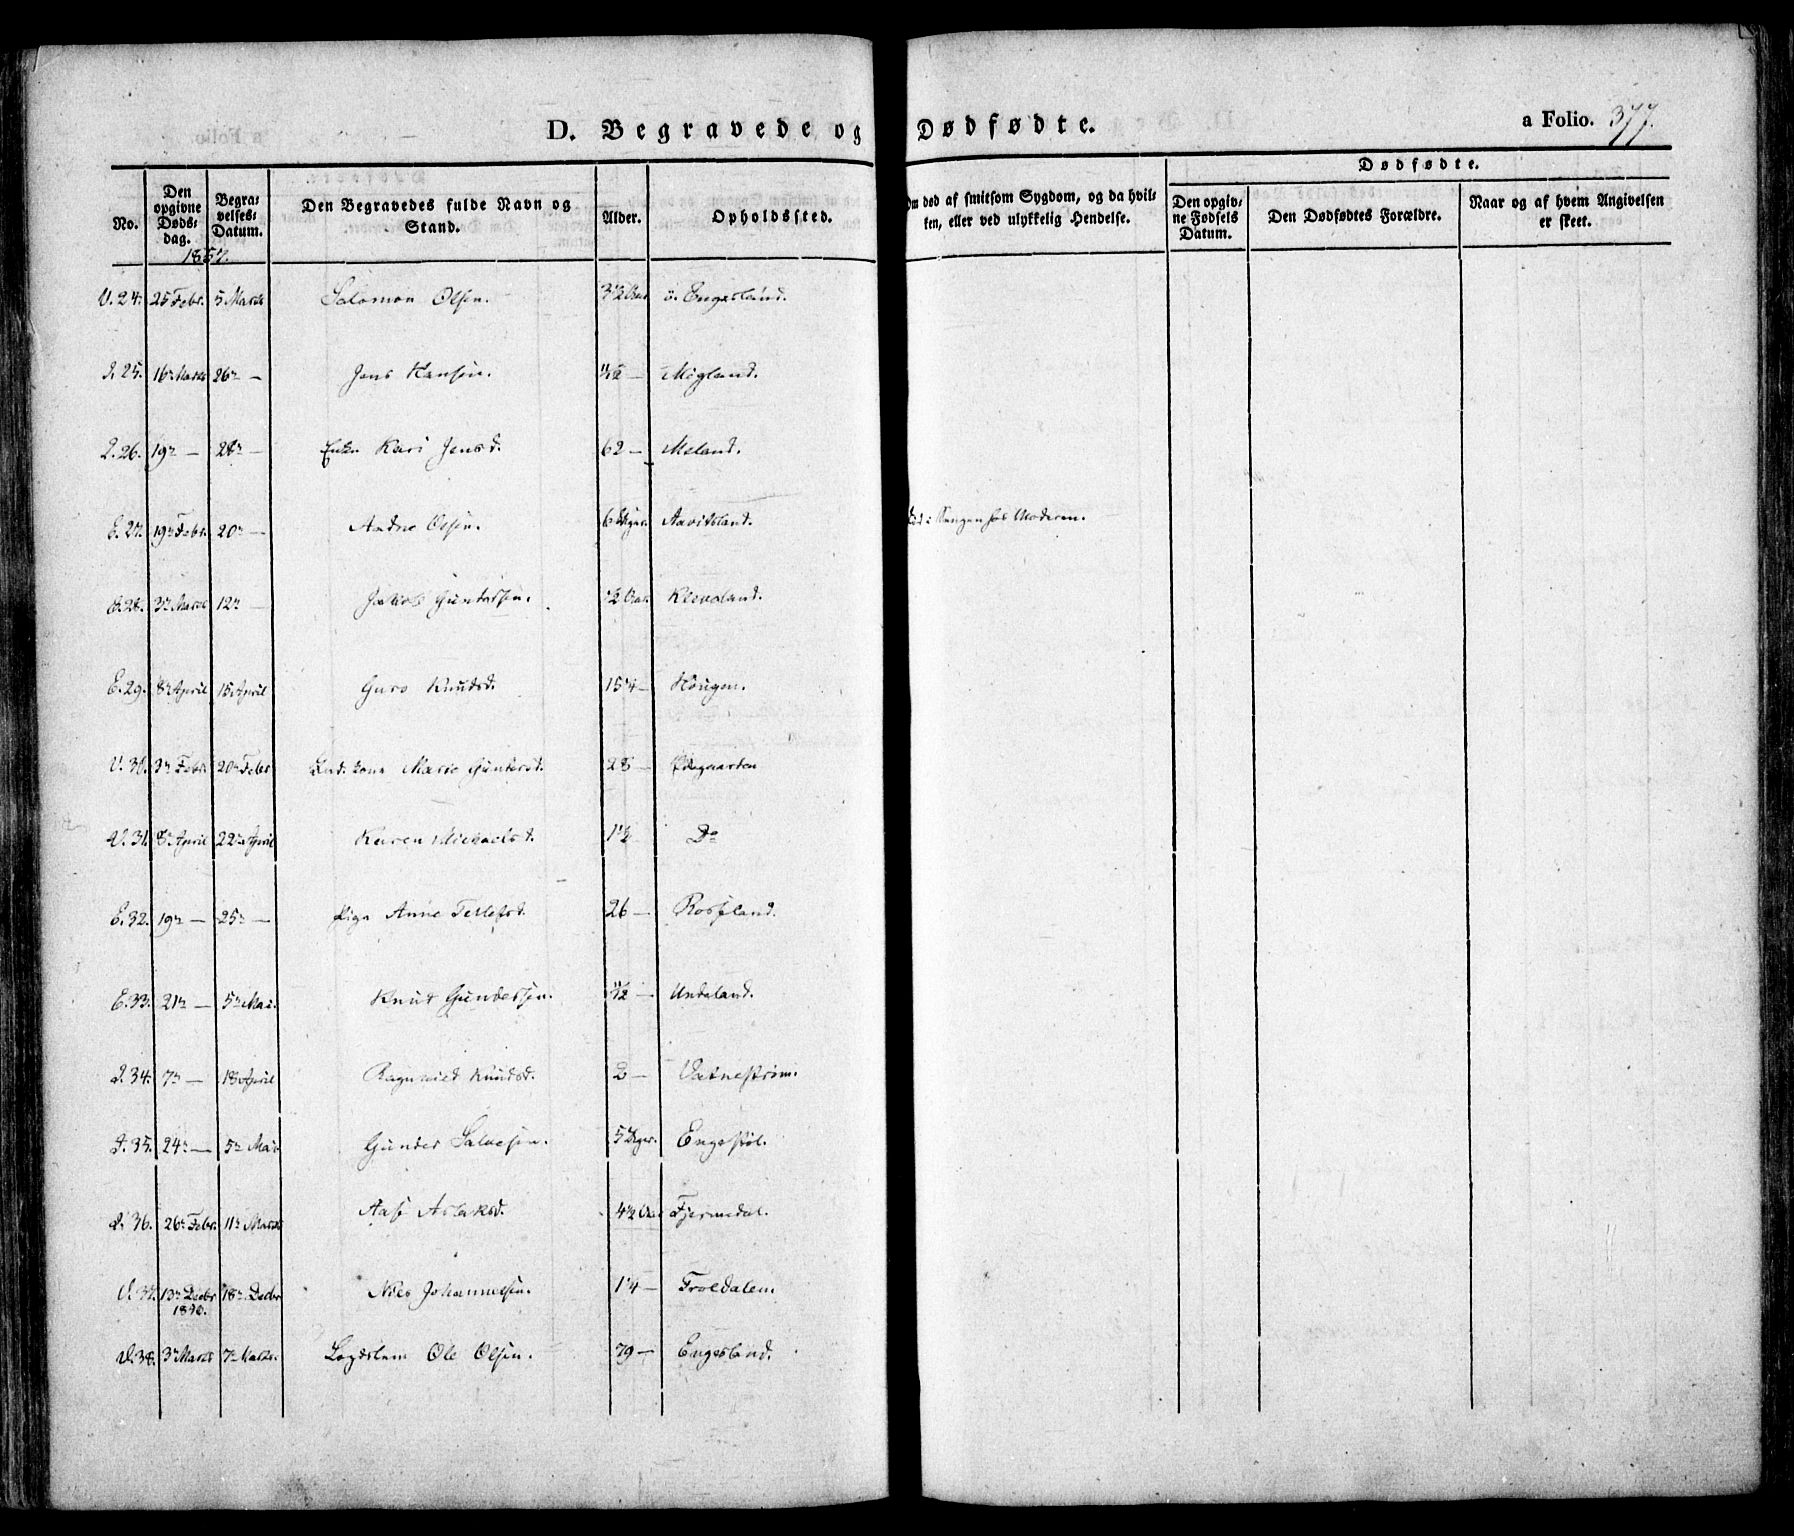 D. Begravede og Dødfødte.
a Folio. 377.
No.
Den opgivne Døds-dag.
Begra-velses-Datum.
Den Begravedes fulde Navn og Stand.
Alder.
Opholdssted.
Om død af smitsom Sygdom, og da hvil-ken, eller ved ulykkelig Hendelse.
Dødfødte.
Den opgiv-ne Fødsels Datum.
Den Dødfødtes Forældre.
Naar og af hvem Angivelsen er skeet.
V. 24. 25 Febr. 5 Marts Salomon Olsen. 3½ Aar Engesland.
25. 16n Marts 26n — Jens Hansen. — Migland.
26. 19n — — Enke Kari Jensd. 62 — Meland.
E. 27. 19n Febr. 20n — Olsen. 6 Aavitsland. Modern.
28. 3n Marts 12n — Jakob Gundersen. ½ Aar. Klevoland.
E. 29. 8n April 15 April Guro Knudsd. 15¼ — Hougen.
V. 30. Febr. 20n Febr Marie Gundersd. 28 — Ødegaarden
V. 31. 8n April 22n April Karen Michaelsd. 1½ Do
E. 32. 19n — 25n — Pige Anne Tellefsd. 26 — Rosseland.
E. 33. 21n — 5n Mai. Knut Gundersen. — Undeland.
34. 7n — 18 April Ragnild Knudsd. 2 — Vatnestrøm.
35. 24n — 5n Mai Gunder Salvesen. 5 Engestøl.
36. 26n Febr. 11n Marts Aase Aslaksd. 4½ Aar Fjermedal.
V. 37. 13n Decbr 18n Decbr Niels Johannesen. 1¼ — Troldalem
V. 38. 3n Marts 7n Marts. Lægdslem Ole Olsen. 79 — Engesland.